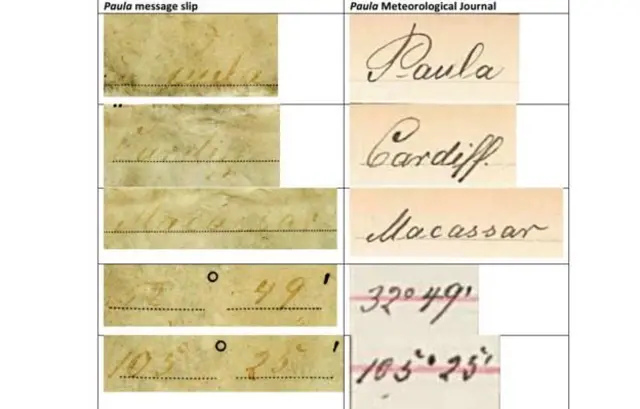 Paula message slip Paula Meteorological Journal
Paula
Cardiff.
Macassar
° 49' 32° 49'
105° 25' 105° 25'